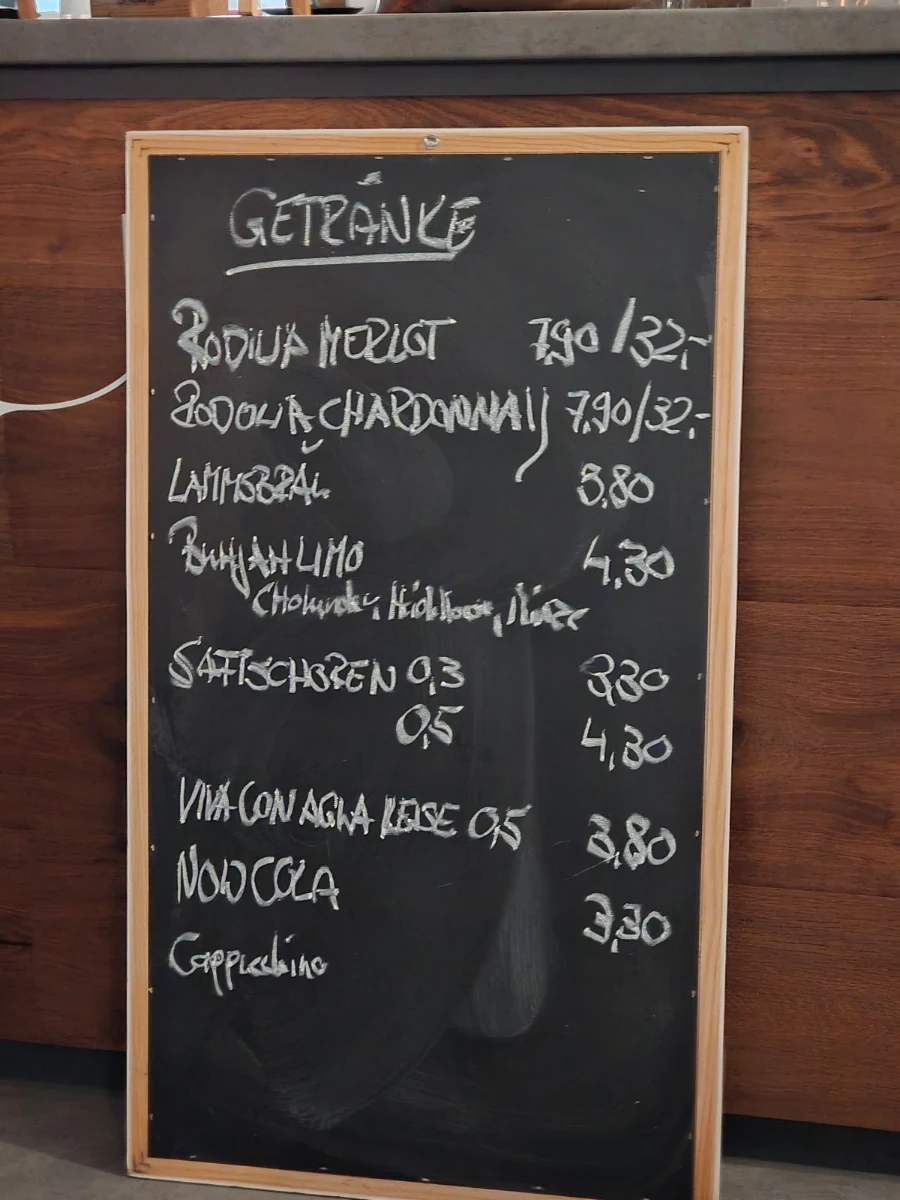 GETRÄNKE
MERLOT 7,90 / 32,-
CHARDONNAY 7,90/32,-
LAMMSBRÄU 3,80
LIMO 4,30
SAFTSCHOREN 0,3 3,30
0,5 4,30
VIVA CON AGUA LEISE 0,5 3,80
NOW COLA 3,30
Cappuchino